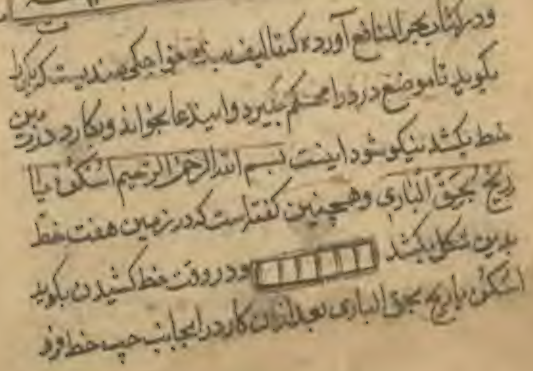 و در کتاب بحر المنافع آورده که تالیف خواجکی هندیست که
بگوید تا موضع درد را محکم بگیرد و این دعا بخواند و بکارد در زمین
خط بکشد نیکو شود اینست بسم الله الرحمن الرحیم اسکن یا
ریح بحق الباری و همچنین گفته است که در زمین هفت خط
بدین شکل بکشد و در وقت خط کشیدن بگوید
اسکن یا ریح بحق الباری بعد ازان کارد را بجانب چپ خط فرو